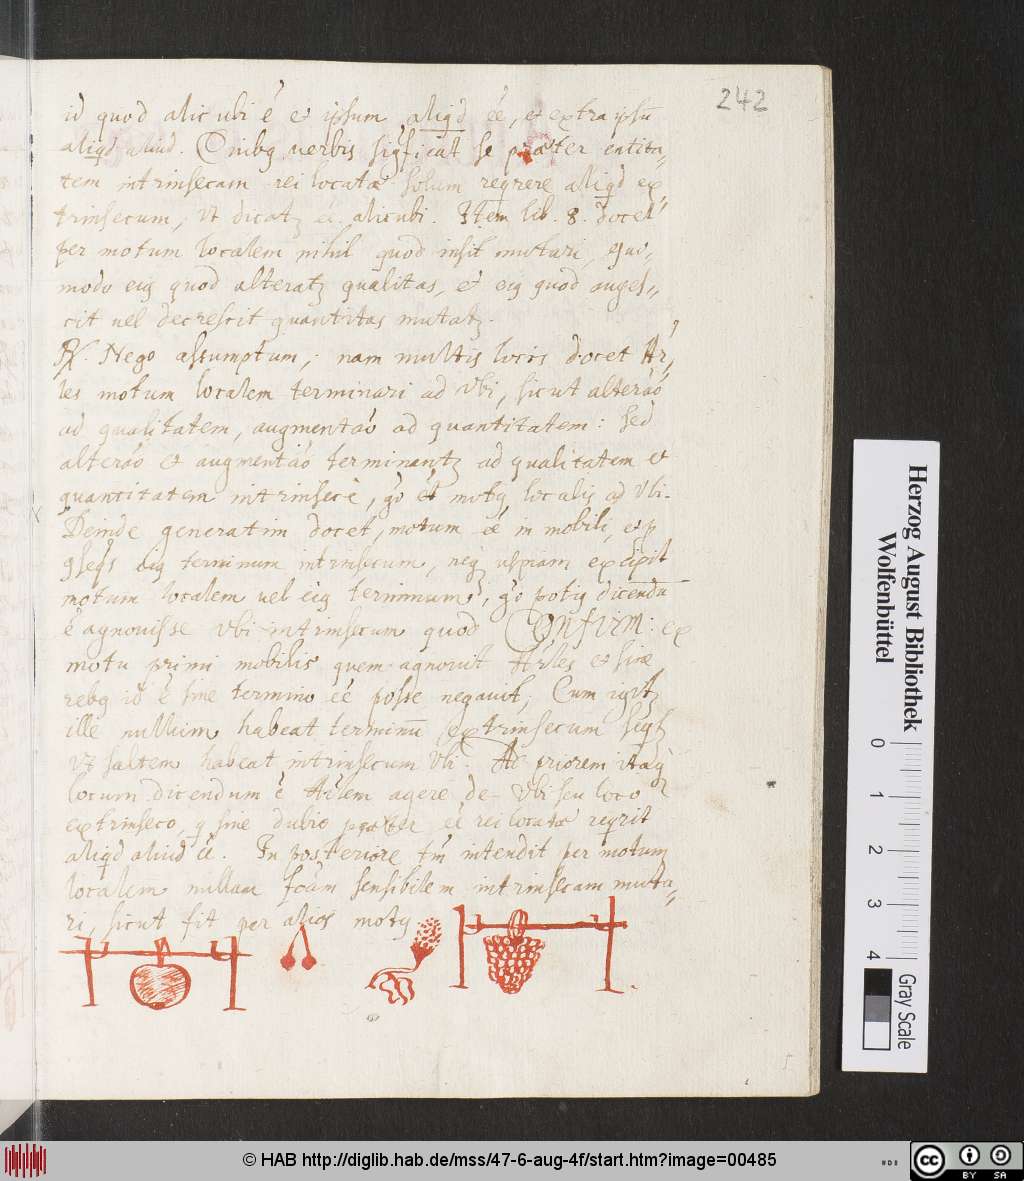 242
id quod alicubi ē et ipsum aliqd eē, et extra ipsū
aliqd aliud. Quibq verbis sigficat se praeter entita„
tem intrinsecam rei locatae solum reqrere aliqd ex
trinsecum, ut dicatz eē alicubi. Item lib. 8. docet
per motum localem nihil quod insit mutari, quo„
modo eiq quod alteratz qualitas, et eiq quod auges„
cit vel decrescit quantitas mutatz.
Rx. Nego assumptum, nam multis locis docet Ar„
les motum localem terminari ad Vbi, sicut alterāo
ad qualitatem, augmentāo ad quantitatem: sed
alterāo et augmentāo terminantz ad qualitatem et
quantitatem intrinsecè, gō et motq localis ad Vbi.
Deinde generatim docet, motum eē in mobili, et p
9seqs eiq terminum intrinsecum, neqz uspiam excipit
motum localem vel eiq terminum, gō potiq dicendū
ē agnovisse Vbi intrinsecum quod Confirm: ex
motu primi mobilis quem agnovit Arles et sine
rebq id ē sine termino eē posse negavit, Cum igitz
ille nullum habeat terminū extrinsecum seqtz
Vt saltem habeat intrinsecum Vbi. Ad priorem itaq
locum dicendum ē Arlem agere de Vbi seu loco
extrinseco, q sine dubio praeter eē rei locatae reqrit
aliqd aliud eē. In posteriore tm̄ intendit per motum
localem nullam foam sensibilem intrinsecam muta„
ri, sicut fit per alios motq
Herzog August Bibliothek
Wolfenbüttel
0
1
2
3
4
Gray Scale
© HAB http://diglib.hab.de/mss/47-6-aug-4f/start.htm?image=00485
cc BY SA